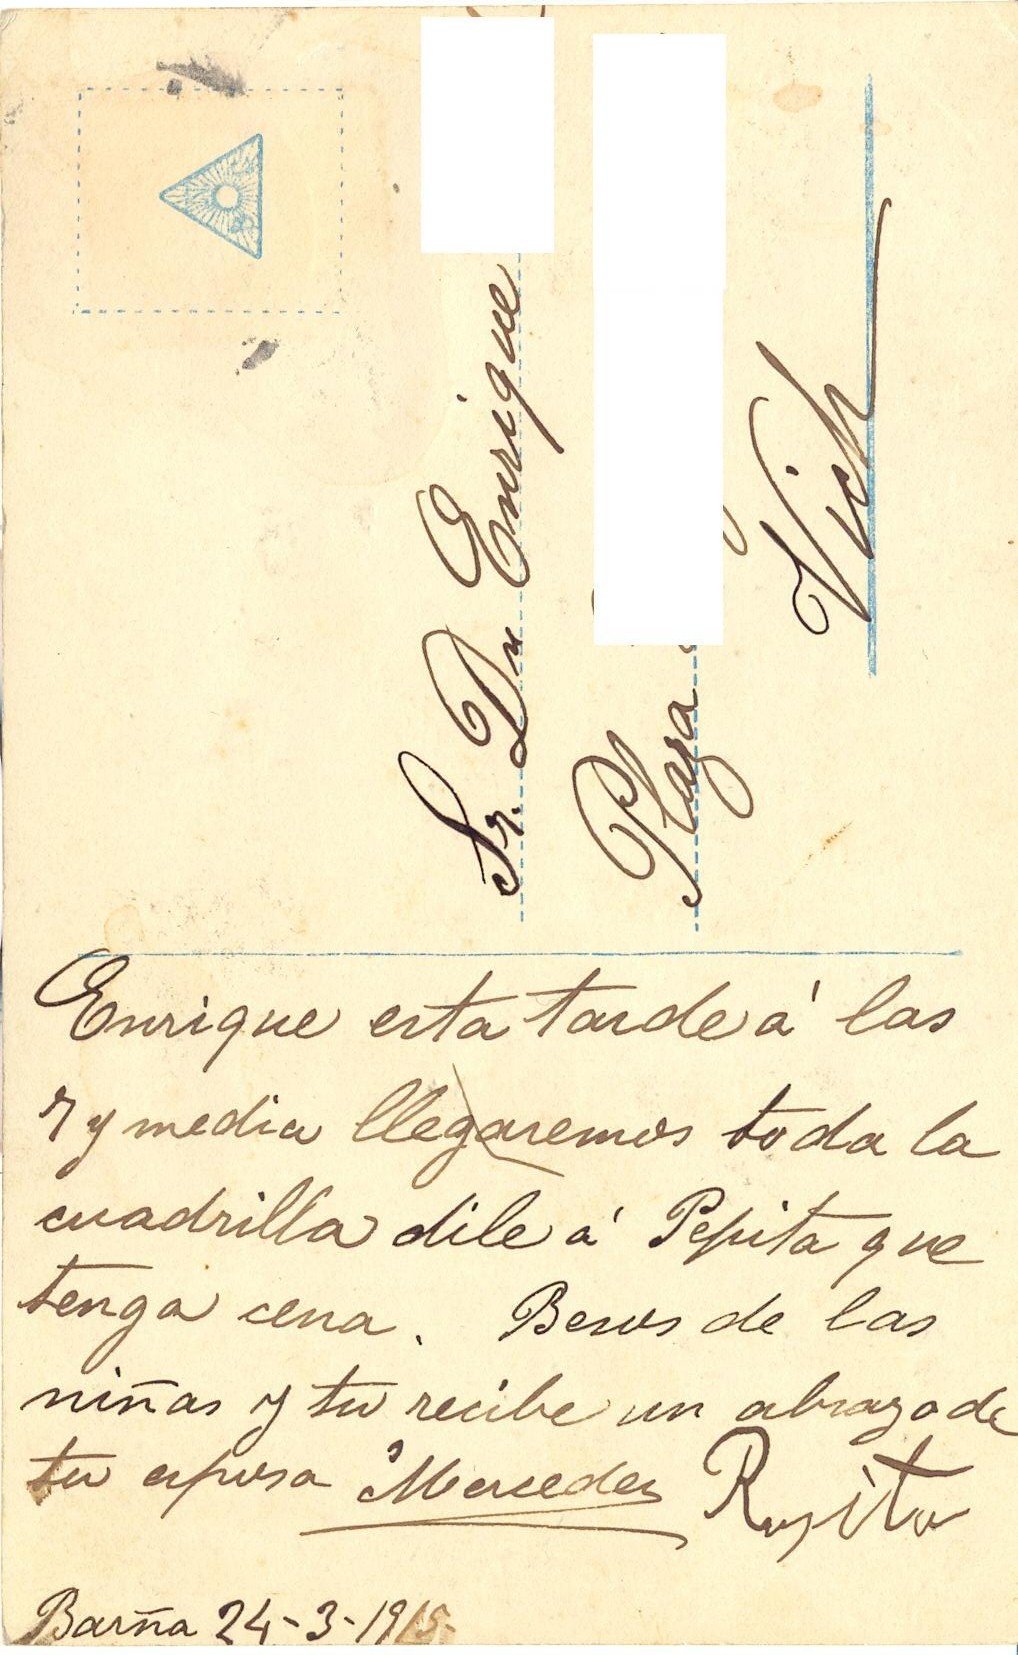 Sr. Dn Enrique
Plaza
Vich
Enrique esta tarde á las
7 y media llegaremos toda la
cuadrilla dile á Pepita que
tenga cena. Besos de las
niñas y tu recibe un abrazo de
tu esposa Mercedes Rosita
Barña 24-3-1915-